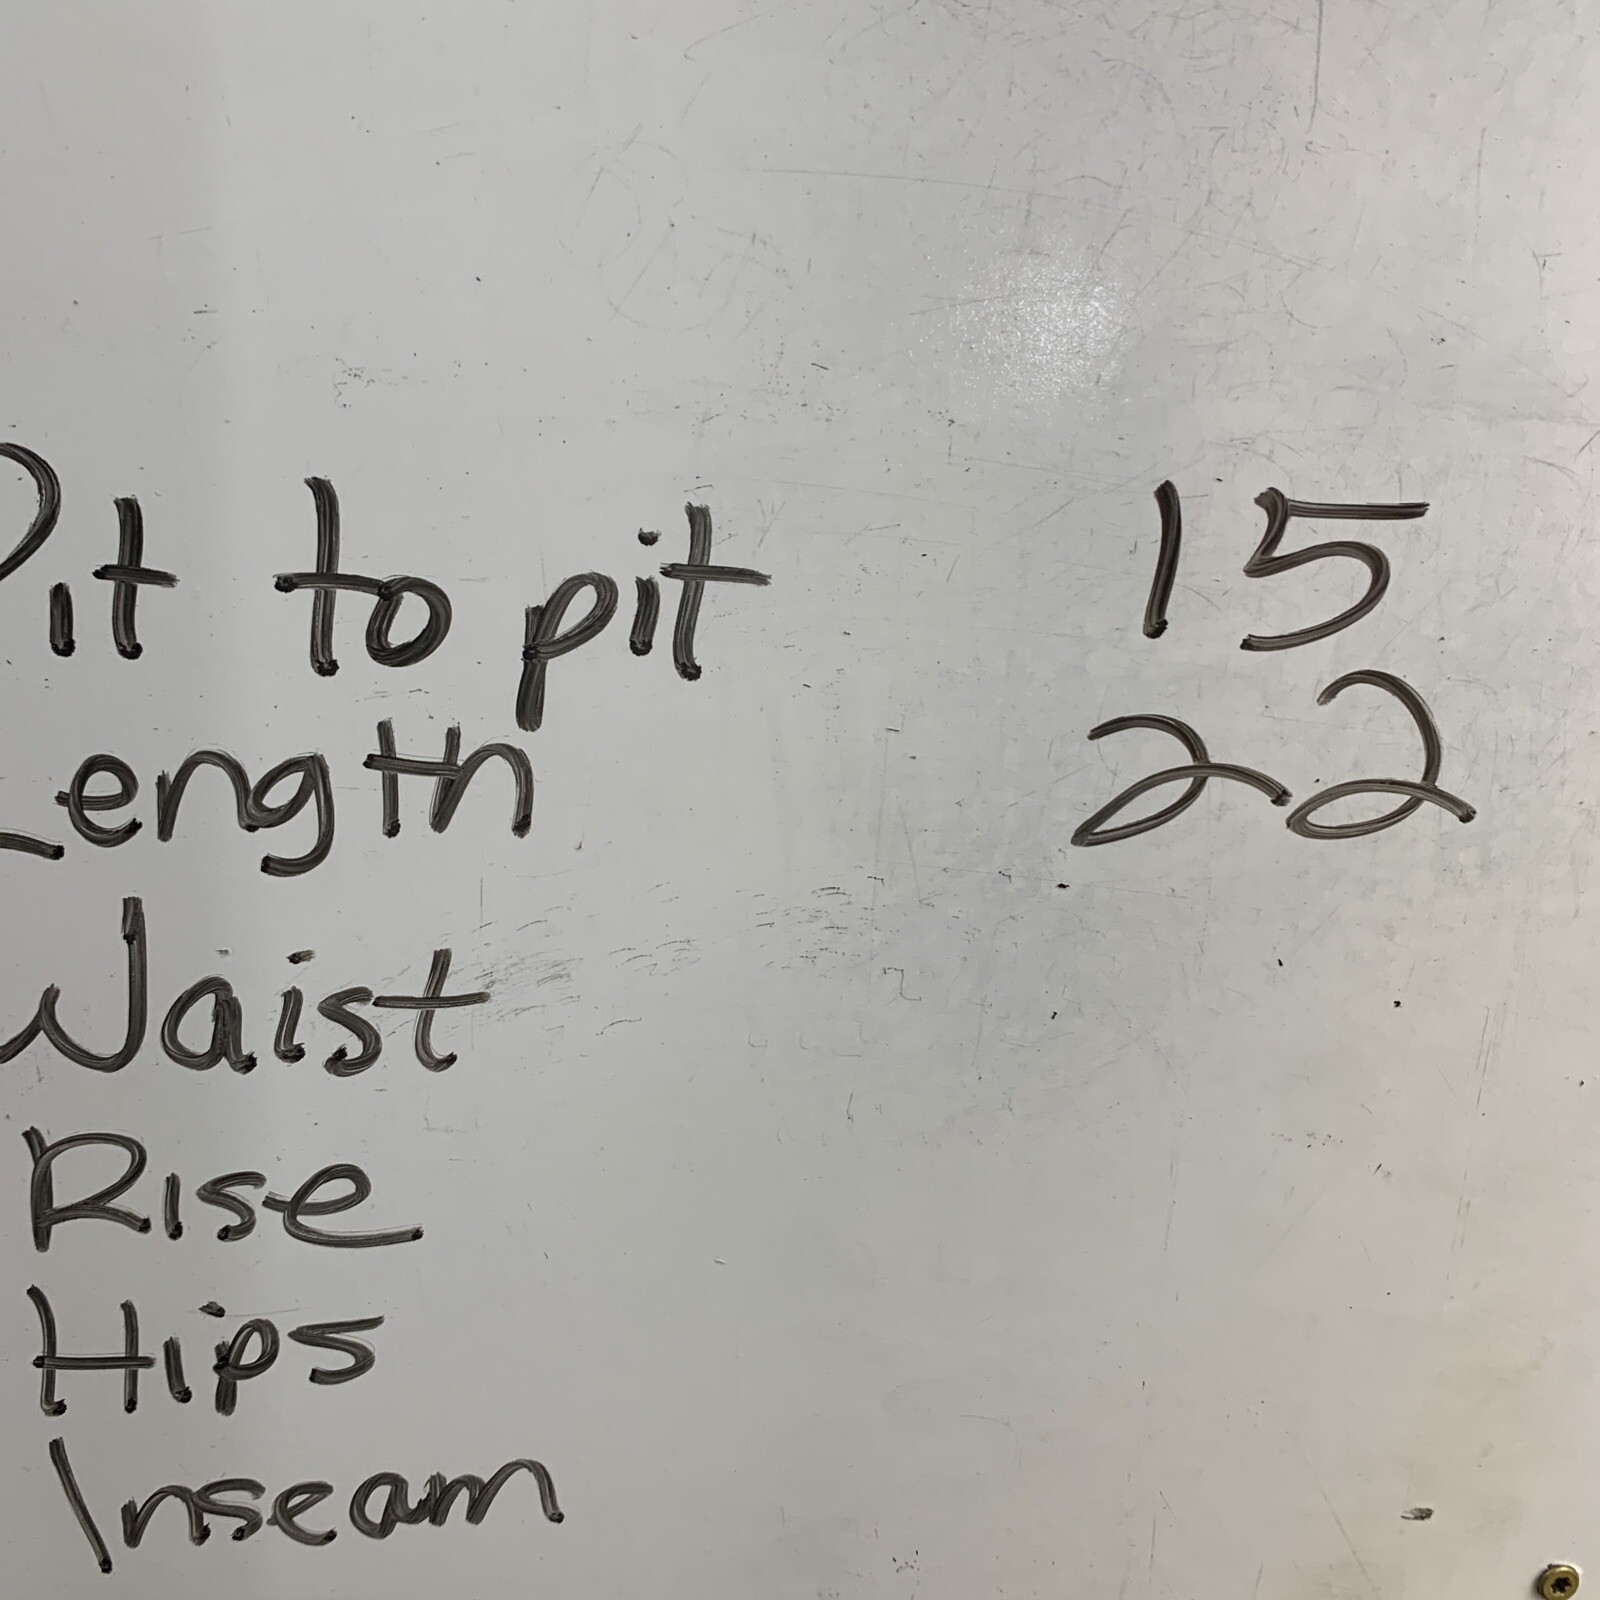 Pit to pit 15
Length 22
Waist
Rise
Hips
Inseam